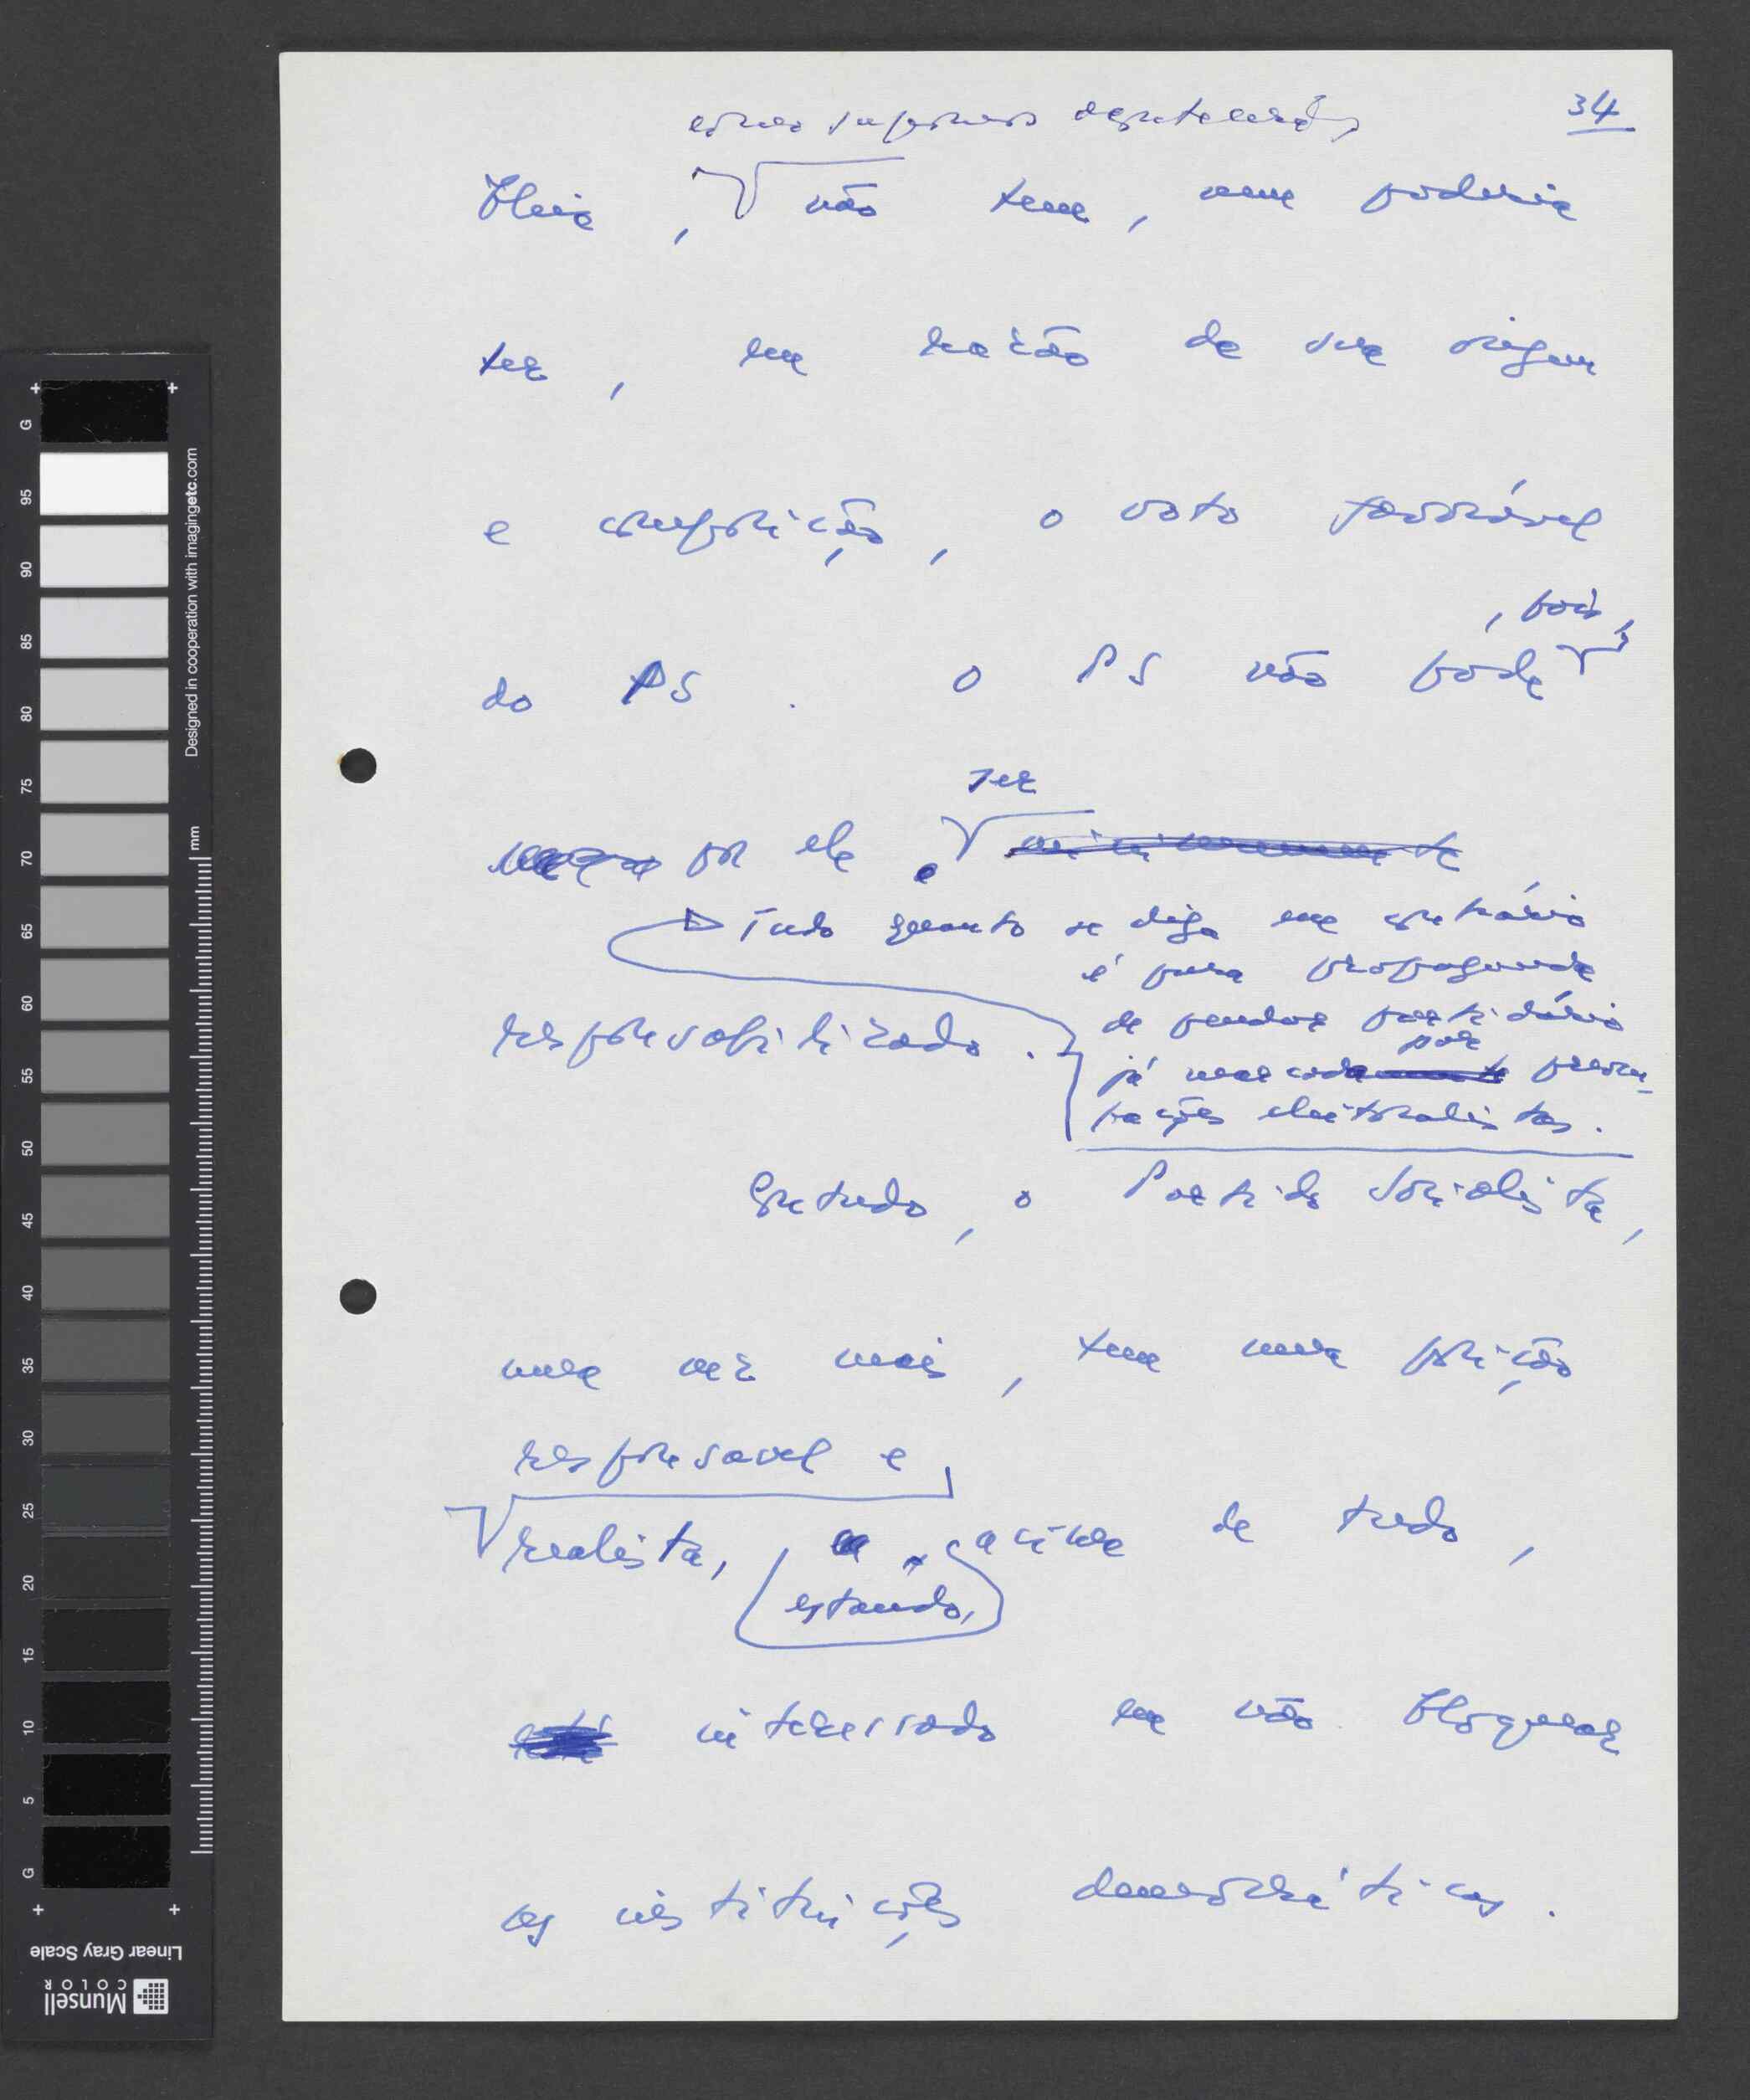 34
como supomos
bleia, não tem, nem poderia
ter, em razão da sua origem
e composição, o voto favorável
, pois,
do PS. O PS não pode
ser
por ele
Tudo quanto se diga em contrário
é pura propaganda
de pendor partidário
responsabilizado.
por
já marcada preocu-
pações eleitoralistas.
Contudo, o Partido Socialista,
uma vez mais, tem uma posição
responsavel e
realista, acima de tudo,
estando,
interessado em não bloquear
as instituições democráticas.
G 95 90 85 80 75 70 65 60 55 50 45 40 35 30 25 20 15 10 5 G
mm
Designed in cooperation with imagingetc.com
Linear Gray Scale
Munsell
COLOR